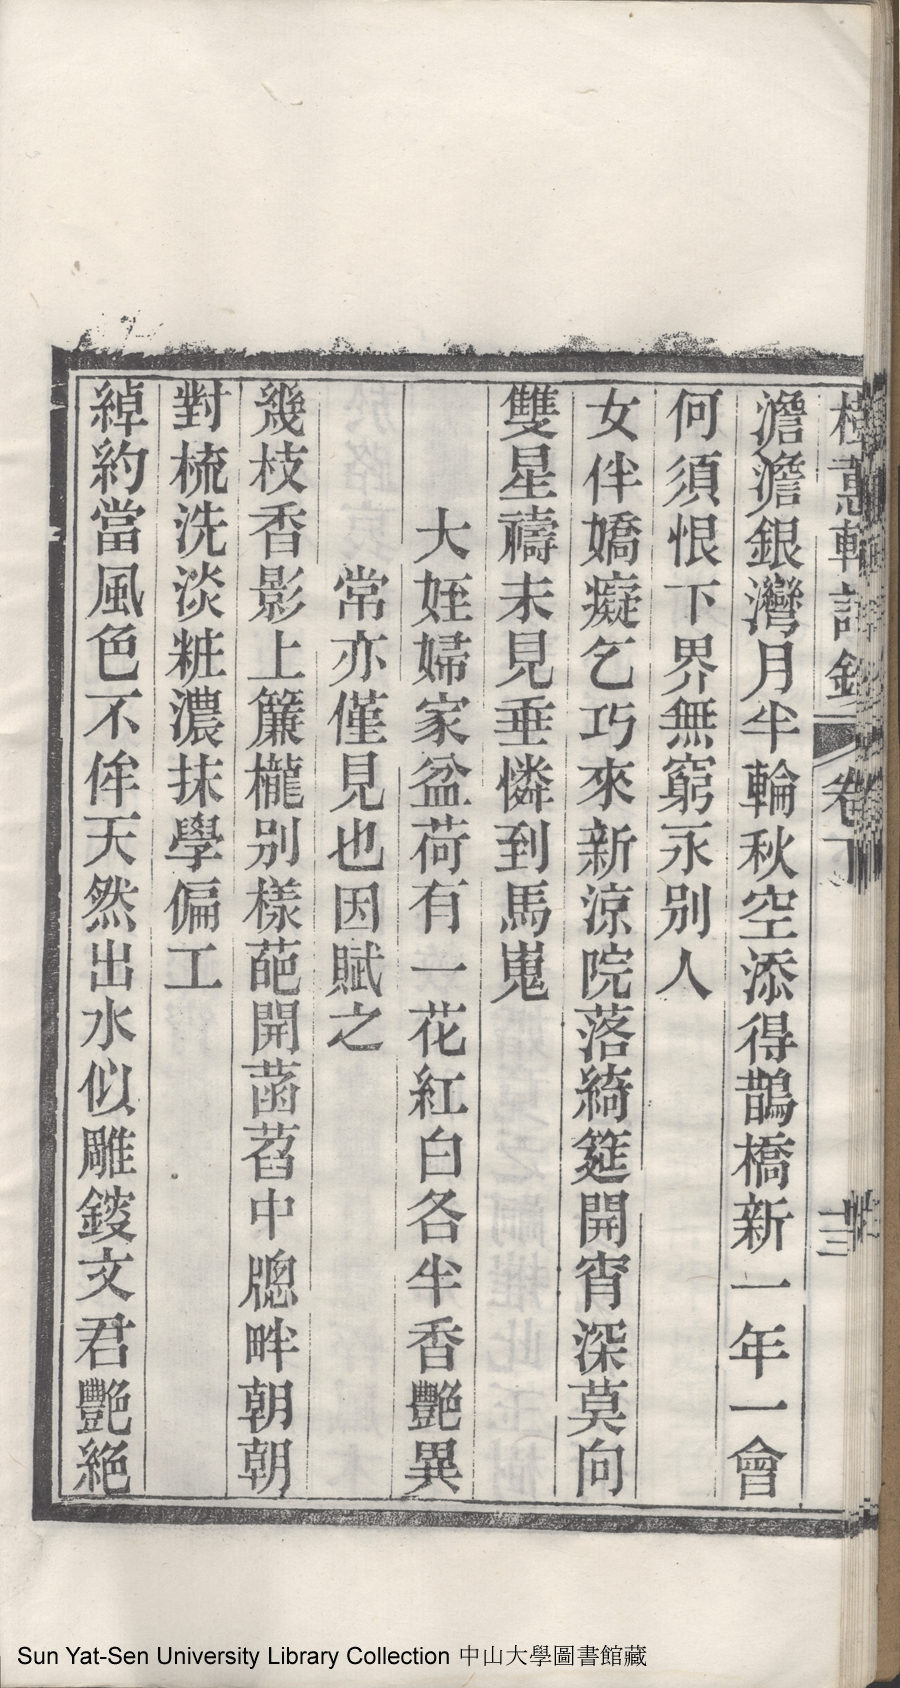 澹澹銀灣月半輪秋空添得鵲橋新一年一會
何須恨下界無窮永別人
女伴嬌癡乞巧來新涼院落綺筵開宵深莫向
雙星禱未見垂憐到馬嵬
大姪婦家盆荷有一花紅白各半香艷異
常亦僅見也因賦之
幾枝香影上簾櫳別樣葩開菡萏中牕畔朝朝
對梳洗淡粧濃抹學偏工
綽約當風色不侔天然出水似雕鎪文君艷絕
軒詩鈔 卷下
Sun Yat-Sen University Library Collection 中山大學圖書館藏